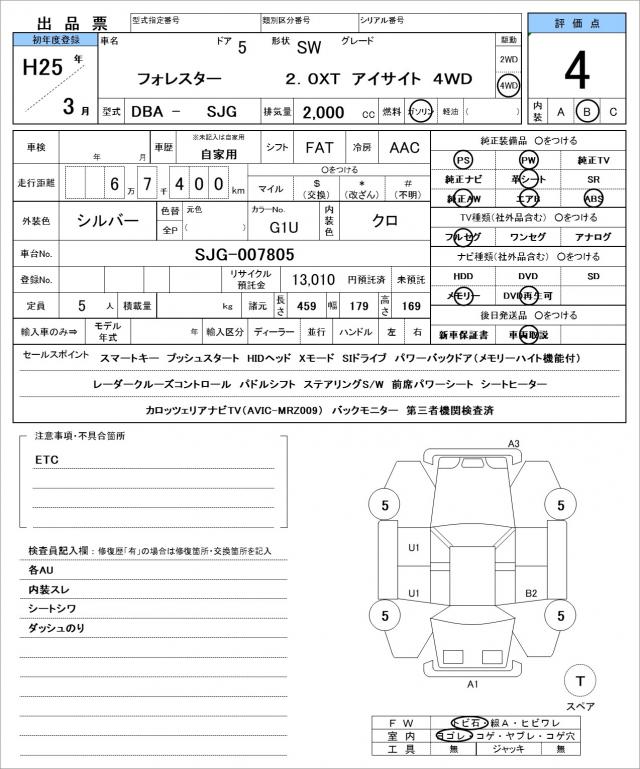 出品票 型式指定番号 類別区分番号 シリアル番号 評価点
初年度登録 車名 ドア 5 形状 SW グレード 駆動
H25 年 フォレスター 2.0XT アイサイト 4WD 2WD 4
3 月 4WD
型式 DBA － SJG 排気量 2,000 cc 燃料 ガソリン 軽油 ( ) 内装 A B C
車検 年 月 車歴 ※未記入は自家用 自家用 シフト FAT 冷房 AAC
走行距離 6 万 7 千 4 0 0 km 〇をつける
マイル $ (交換) * (改ざん) # (不明)
外装色 シルバー 色替 元色 カラーNo. 内装色 クロ
全P ( ) G1U
車台No. SJG-007805
登録No. リサイクル預託金 13,010 円預託済 未預託
定員 5 人 積載量 kg 諸元 長さ 459 幅 179 高さ 169
輸入車のみ⇒ モデル年式 年 輸入区分 ディーラー 並行 ハンドル 左 右
純正装備品 〇をつける
PS PW 純正TV
純正ナビ 革シート SR
純正AW エアB ABS
TV種類(社外品含む) 〇をつける
フルセグ ワンセグ アナログ
ナビ種類(社外品含む) 〇をつける
HDD DVD SD
メモリー DVD再生可
後日発送品 〇をつける
新車保証書 車両取説
セールスポイント スマートキー プッシュスタート HIDヘッド Xモード SIドライブ パワーバックドア(メモリーハイト機能付)
レーダークルーズコントロール パドルシフト ステアリングS/W 前席パワーシート シートヒーター
カロッツェリアナビTV(AVIC-MRZ009) バックモニター 第三者機関検査済
注意事項・不具合箇所
ETC
検査員記入欄：修復歴「有」の場合は修復箇所・交換箇所を記入
各AU
内装スレ
シートシワ
ダッシュのり
A3
5 5
U1
U1 B2
5 5
A1
T
スペア
FW トビ石・線A・ヒビワレ
室内 ヨゴレ・コゲ・ヤブレ・コゲ穴
工具 無 ジャッキ 無